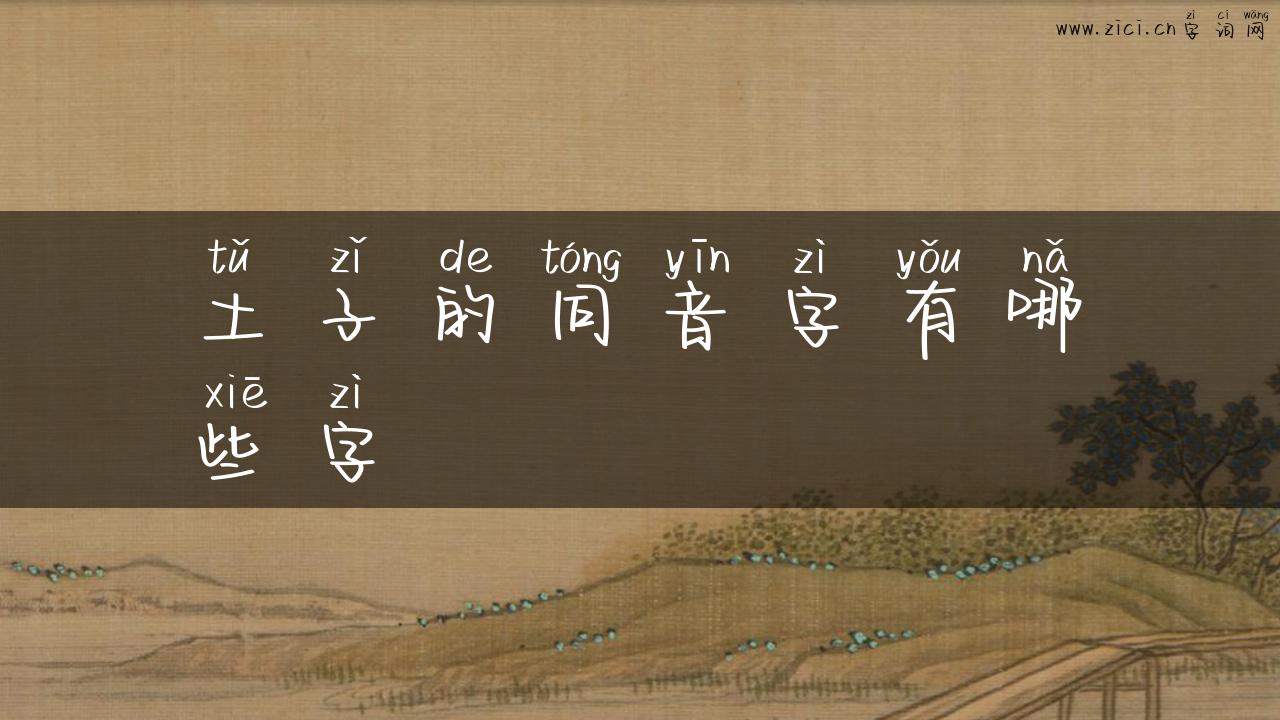 zì cí wǎng
www.zici.cn 字词网
tǔ zǐ de tóng yīn zì yǒu nǎ
土子的同音字有哪
xiē zì
些字